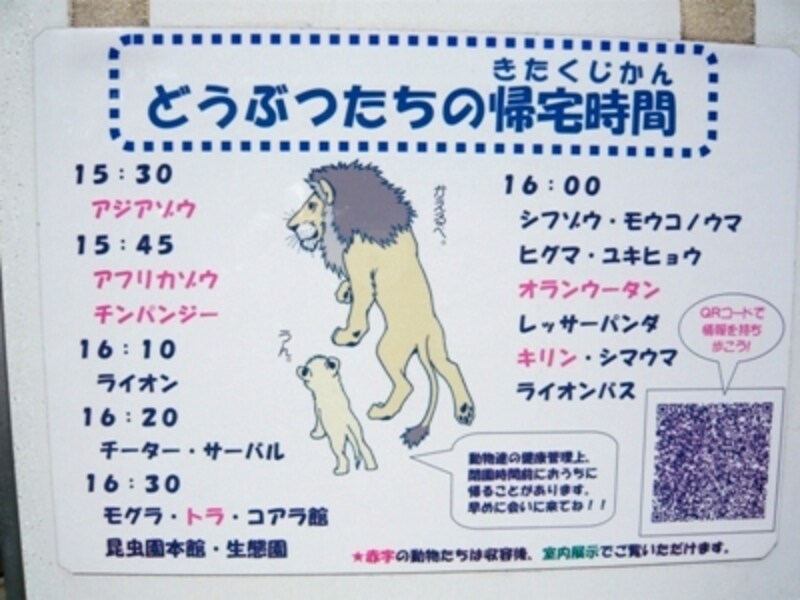 きたくじかん
どうぶつたちの帰宅時間
15:30
アジアゾウ
15:45
アフリカゾウ
チンパンジー
16:10
ライオン
16:20
チーター・サーバル
16:30
モグラ・トラ・コアラ館
昆虫園本館・生態園
かえるべ。
うん。
16:00
シフゾウ・モウコノウマ
ヒグマ・ユキヒョウ
オランウータン
レッサーパンダ
キリン・シマウマ
ライオンバス
QRコードで
情報を持ち
歩こう!
動物達の健康管理上、
閉園時間前におうちに
帰ることがあります。
早めに会いに来てね!!
★赤字の動物たちは収容後、室内展示でご覧いただけます。